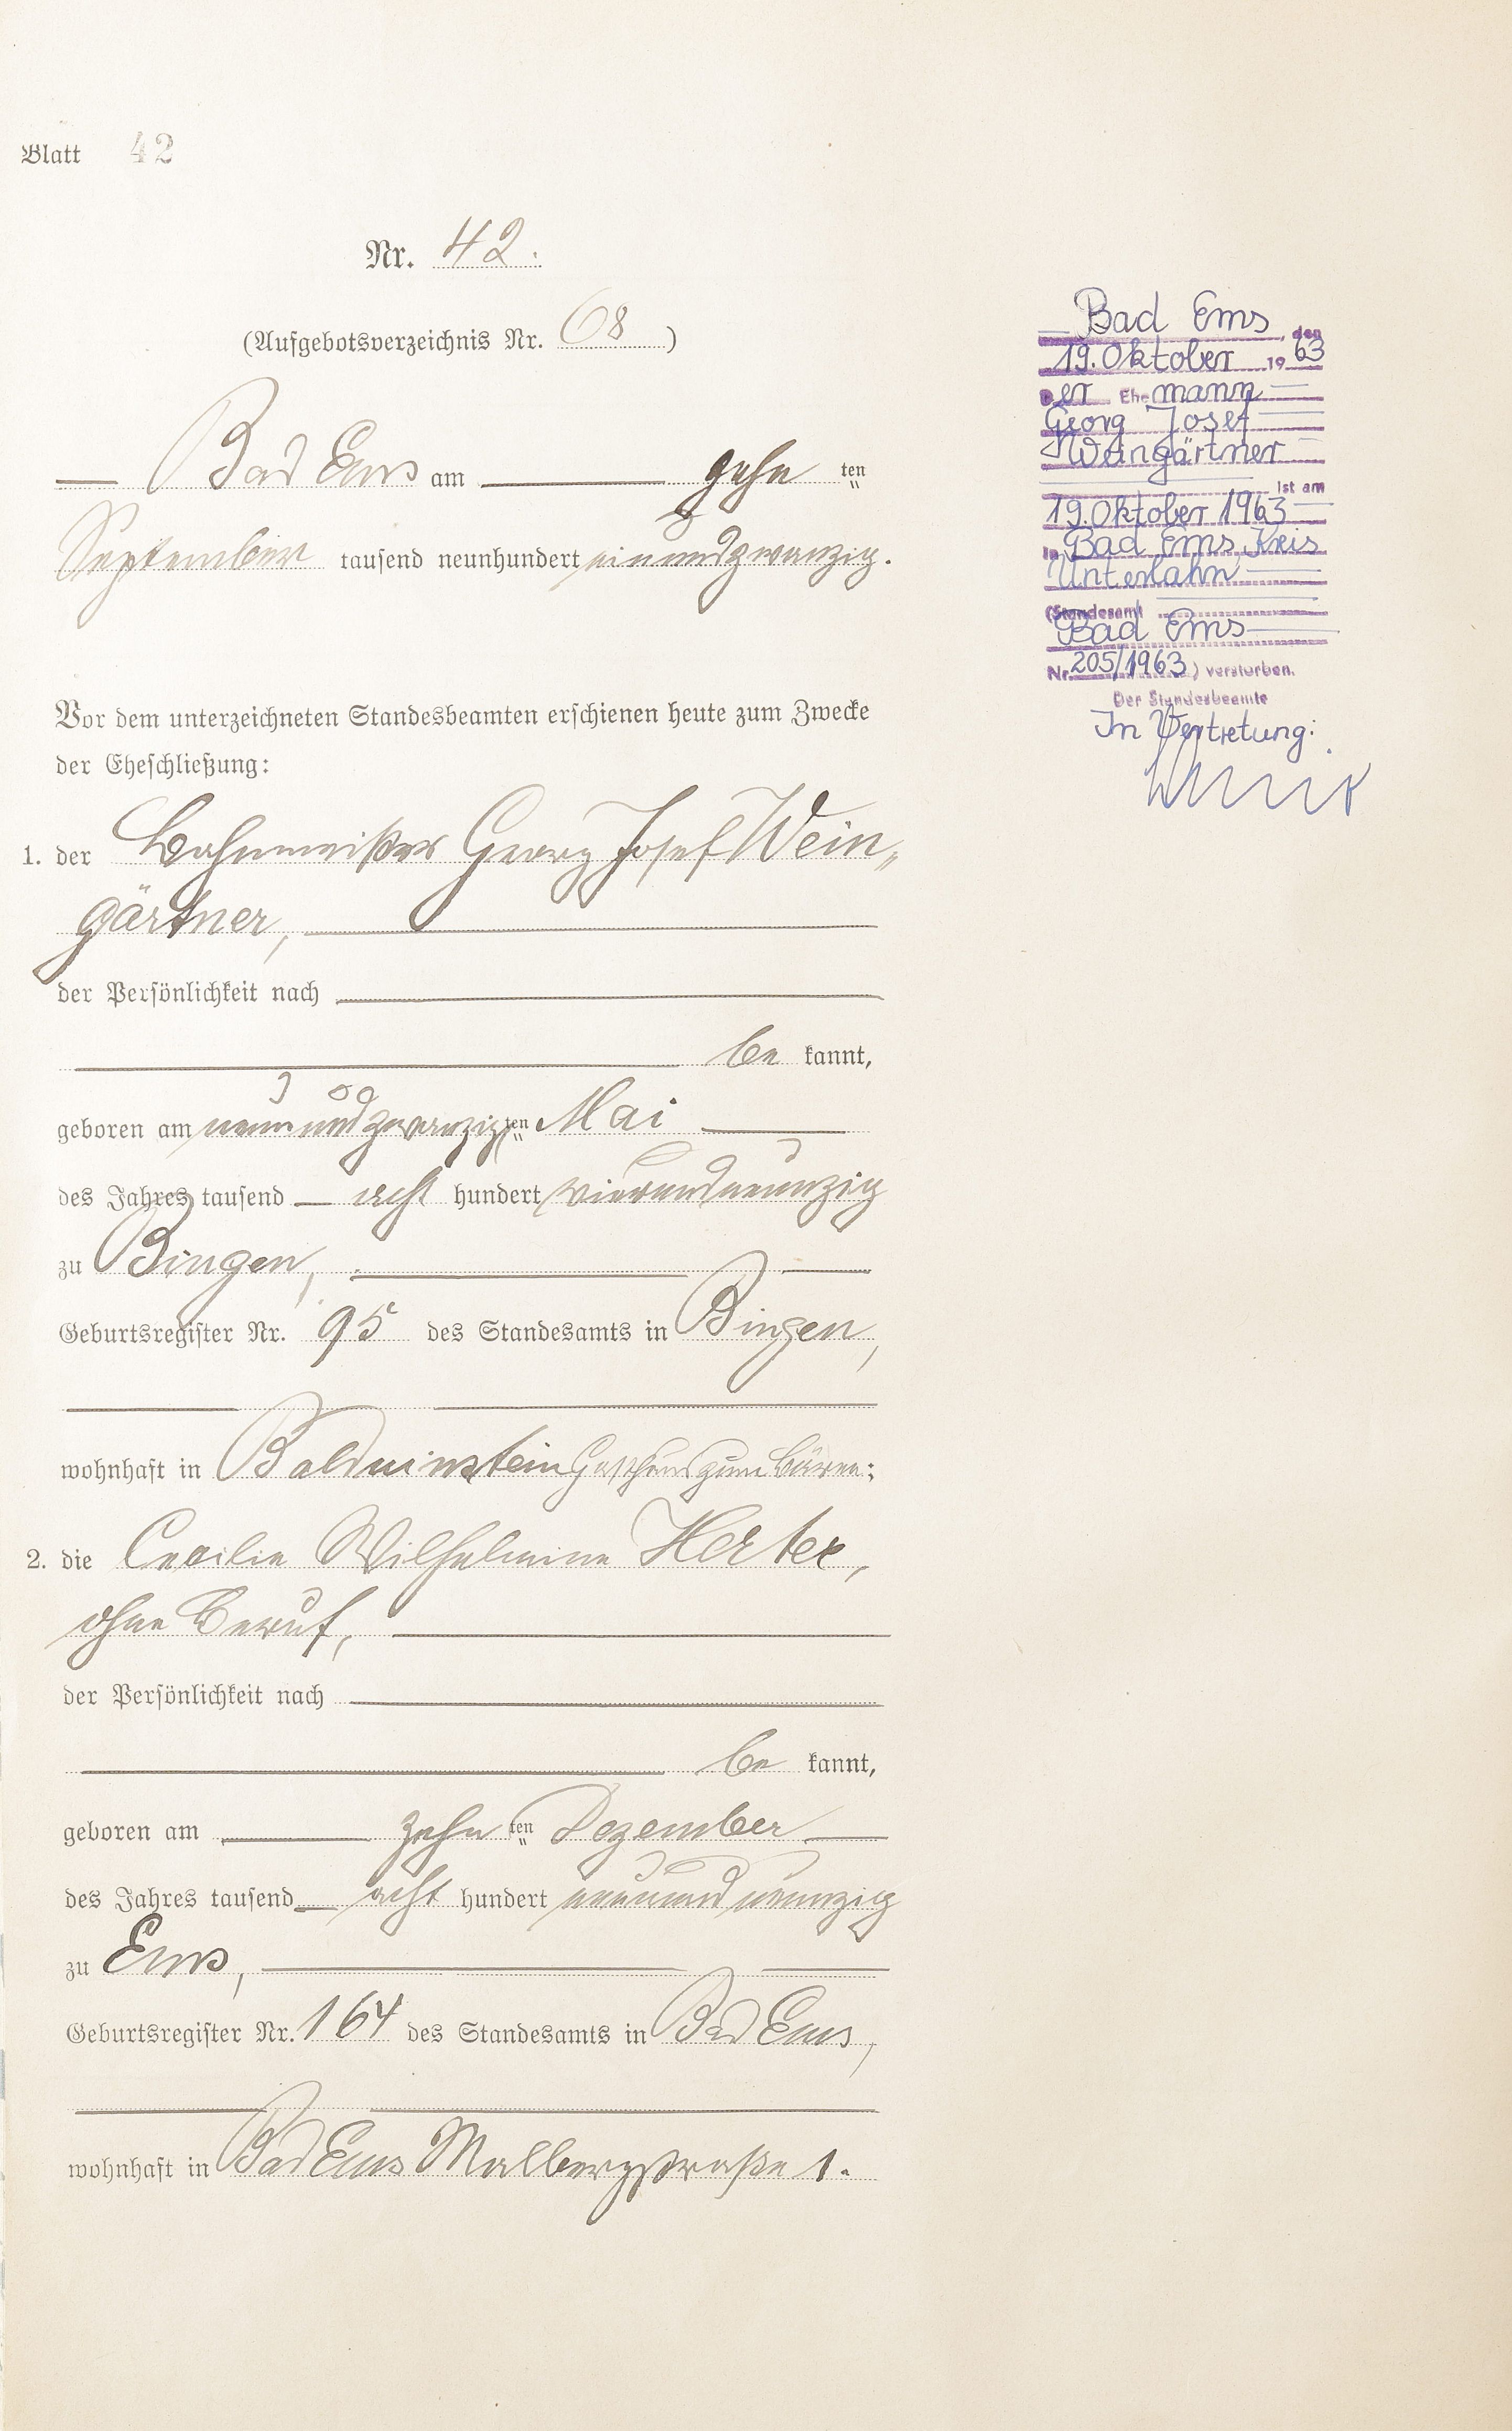 Blatt 42
Nr. 42.
(Aufgebotsverzeichnis Nr. 68)
Bad Ems am zehn ten
September tausend neunhundert einundzwanzig.
Vor dem unterzeichneten Standesbeamten erschienen heute zum Zwecke
der Eheschließung:
1. der Bahnmeister Georg Josef Wein„
gärtner,
der Persönlichkeit nach
be kannt,
geboren am neunundzwanzigten Mai
des Jahres tausend acht hundert vierundneunzig
zu Bingen,
Geburtsregister Nr. 95 des Standesamts in Bingen,
wohnhaft in Balduinstein Gasthaus zum Bären;
2. die Cecilie Wilhelmine Herter,
ohne Beruf,
der Persönlichkeit nach
be kannt,
geboren am zehn ten Dezember
des Jahres tausend acht hundert neunundneunzig
zu Ems,
Geburtsregister Nr. 164 des Standesamts in Bad Ems,
wohnhaft in Bad Ems Malbergstraße 1.
Bad Ems, den
19. Oktober 1963
Der Ehemann
Georg Josef
Weingärtner
ist am
19. Oktober 1963
in Bad Ems, Kreis
Unterlahn
(Standesamt
Bad Ems
Nr. 205/1963) verstorben.
Der Standesbeamte
In Vertretung: